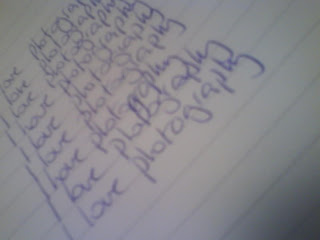 love photogra
love photography
I love photography
I love photography
I love photography
I love photography
I love photography
I love photography